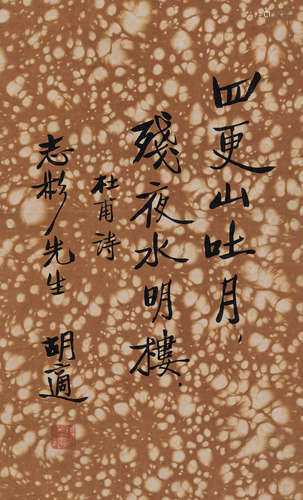 四更山吐月，
殘夜水明樓．
杜甫詩
志彬先生
胡適